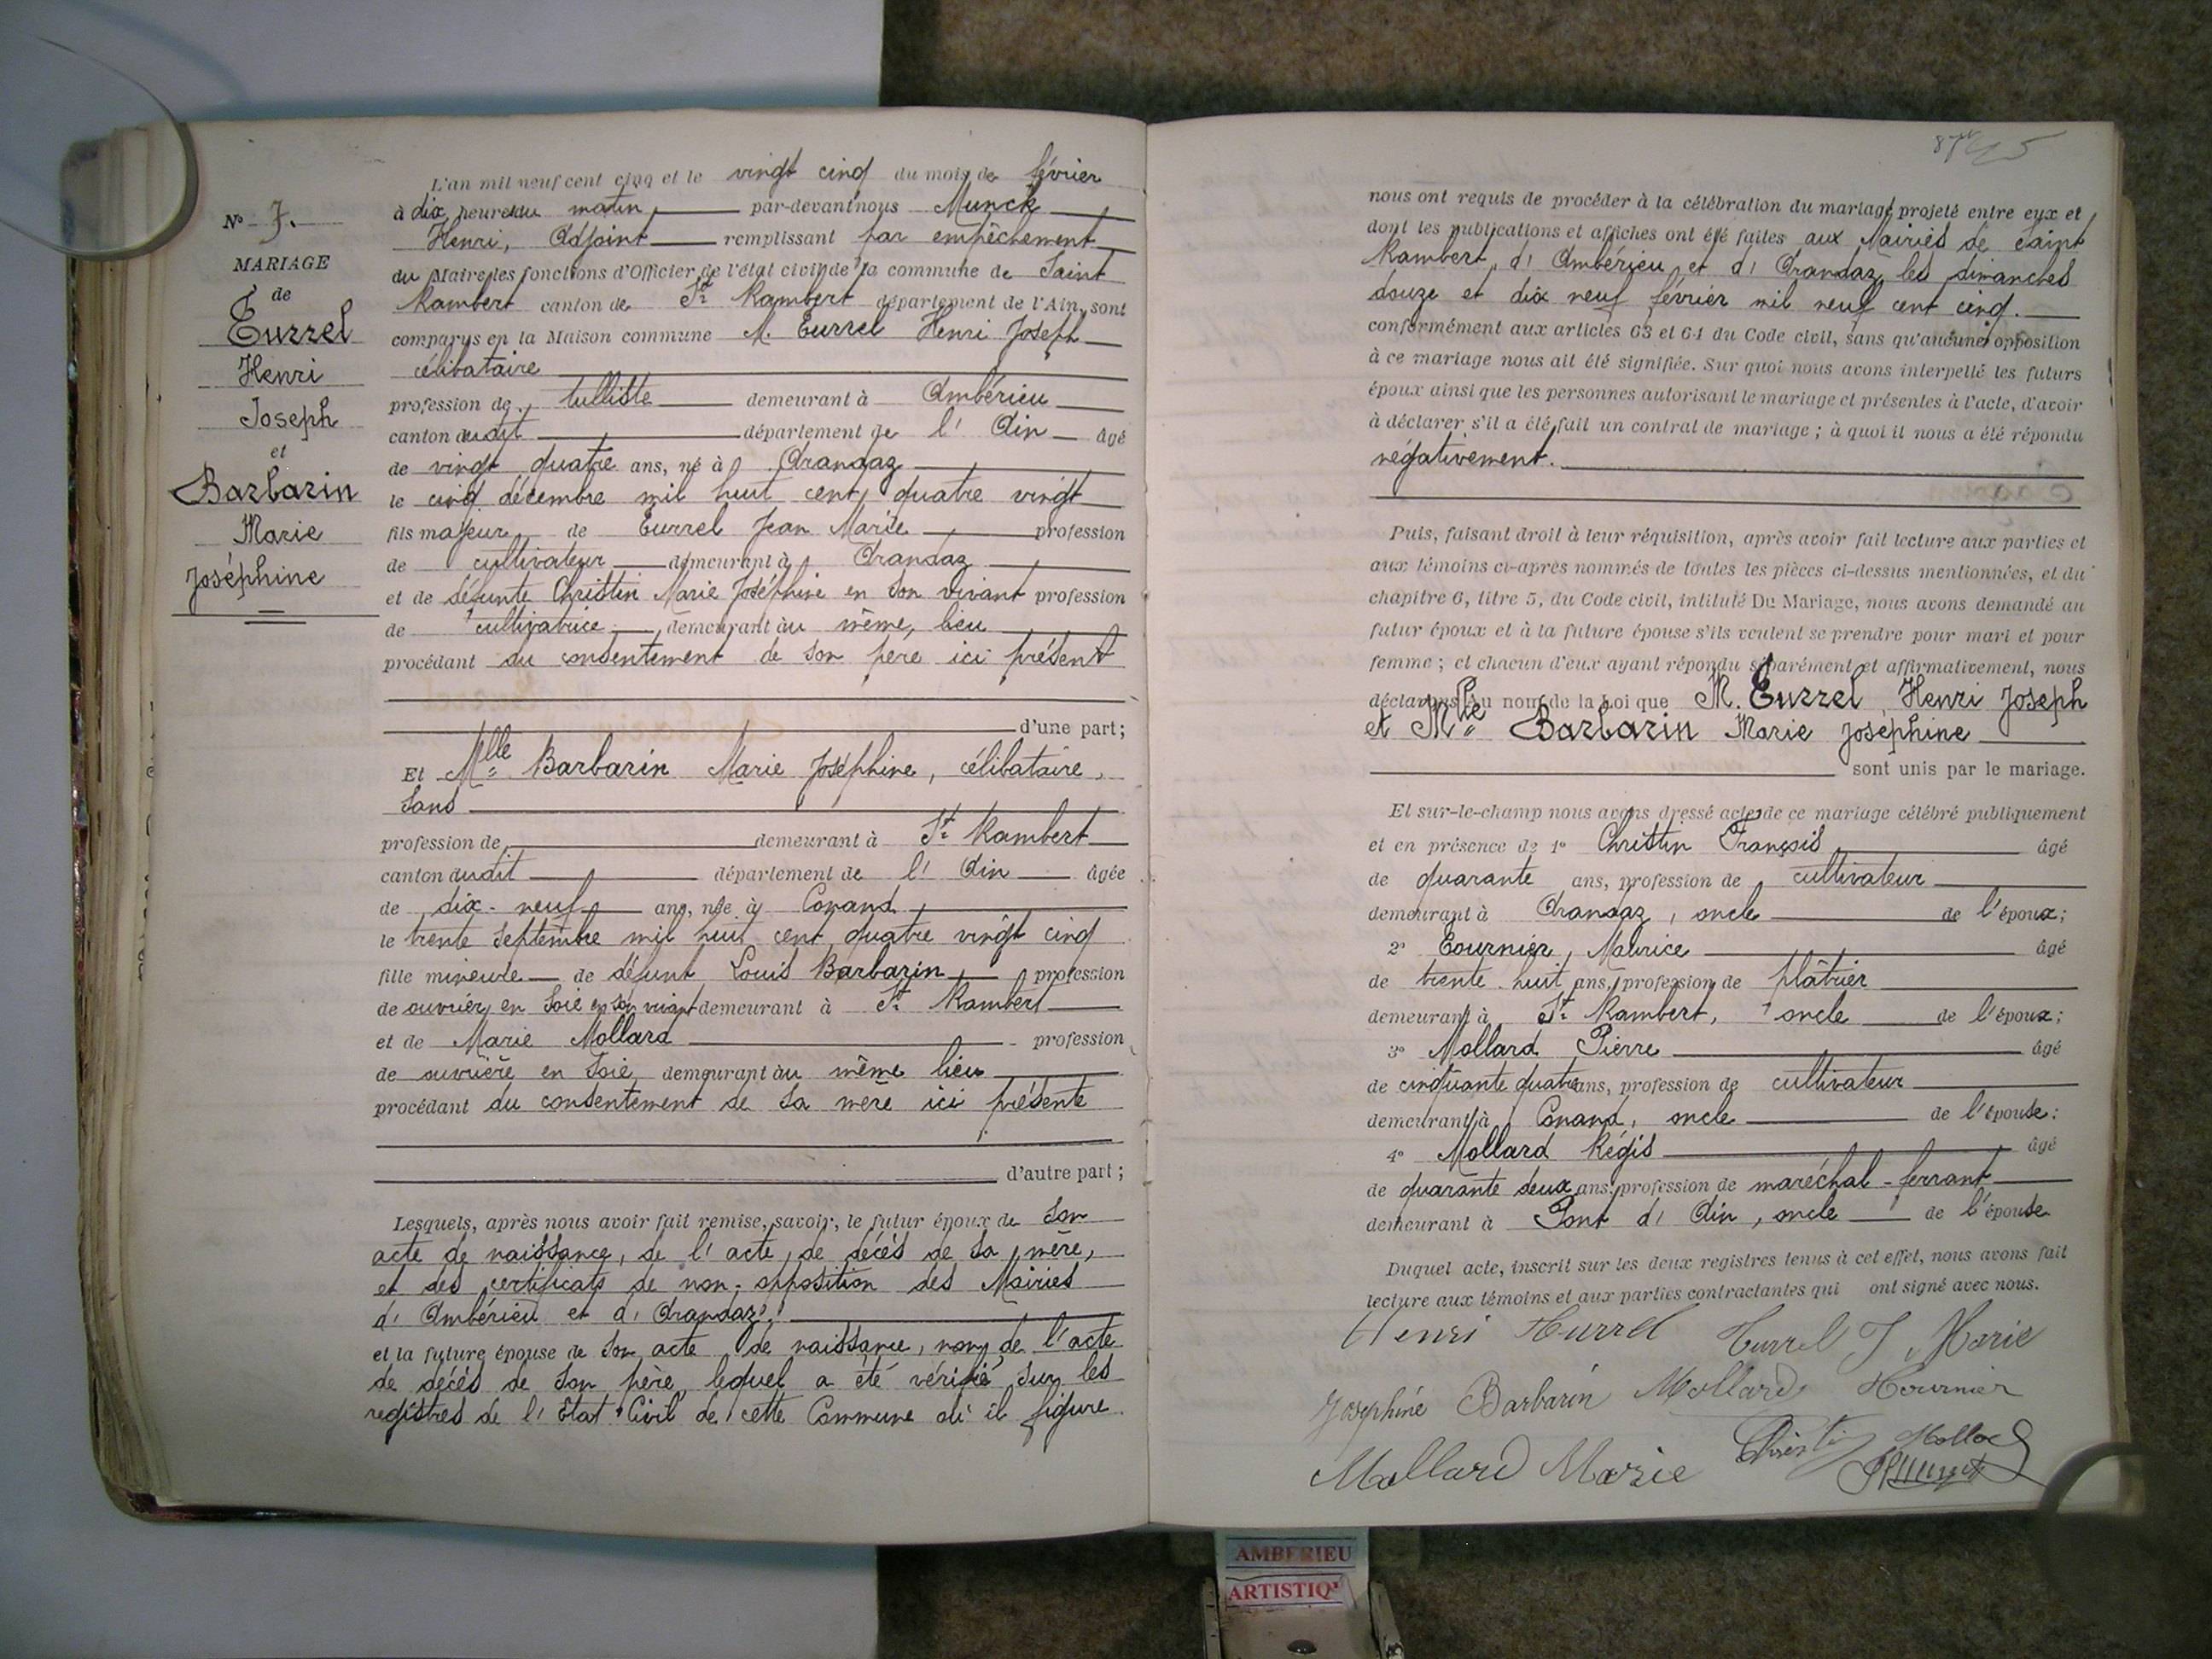 N° 7.
MARIAGE
de
Eurrel
Henri
Joseph
et
Barbarin
Marie
Joséphine
L'an mil neuf cent cinq et le vingt cinq du mois de février
à dix heures du matin par-devant nous Munck
Henri, Adjoint remplissant par empêchement
du Maire les fonctions d'Officier de l'état civil de la commune de Saint
Rambert canton de St Rambert département de l'Ain, sont
comparus en la Maison commune M. Eurrel Henri Joseph
célibataire
profession de tulliste demeurant à Ambérieu
canton dudit département de l'Ain âgé
de vingt quatre ans, né à Arandaz
le cinq décembre mil huit cent quatre vingt
fils majeur de Eurrel Jean Marie profession
de cultivateur demeurant à Arandaz
et de défunte Christin Marie Joséphine en son vivant profession
de cultivatrice demeurant au même lieu
procédant du consentement de son père ici présent
d'une part;
Et Mlle Barbarin Marie Joséphine, célibataire,
sans
profession de demeurant à St Rambert
canton dudit département de l'Ain âgée
de dix-neuf ans, née à Conand
le trente septembre mil huit cent quatre vingt cinq
fille mineure de défunt Louis Barbarin profession
de ouvrier en soie en son vivant demeurant à St Rambert
et de Marie Mollard profession
de ouvrière en soie demeurant au même lieu
procédant du consentement de sa mère ici présente
d'autre part;
Lesquels, après nous avoir fait remise, savoir, le futur époux de son
acte de naissance, de l'acte de décès de sa mère,
et des certificats de non-opposition des Mairies
d'Ambérieu et d'Arandaz.
et la future épouse de son acte de naissance, non de l'acte
de décès de son père lequel a été vérifié sur les
registres de l'Etat Civil de cette Commune où il figure.
nous ont requis de procéder à la célébration du mariage projeté entre eux et
dont les publications et affiches ont été faites aux Mairies de Saint
Rambert, d'Ambérieu et d'Arandaz les dimanches
douze et dix neuf février mil neuf cent cinq.
conformément aux articles 63 et 64 du Code civil, sans qu'aucune opposition
à ce mariage nous ait été signifiée. Sur quoi nous avons interpellé les futurs
époux ainsi que les personnes autorisant le mariage et présentes à l'acte, d'avoir
à déclarer s'il a été fait un contrat de mariage; à quoi il nous a été répondu
négativement.
Puis, faisant droit à leur réquisition, après avoir fait lecture aux parties et
aux témoins ci-après nommés de toutes les pièces ci-dessus mentionnées, et du
chapitre 6, titre 5, du Code civil, intitulé Du Mariage, nous avons demandé au
futur époux et à la future épouse s'ils veulent se prendre pour mari et pour
femme; et chacun d'eux ayant répondu séparément et affirmativement, nous
déclarons au nom de la Loi que M. Eurrel, Henri Joseph
et Mlle Barbarin Marie Joséphine
sont unis par le mariage.
Et sur-le-champ nous avons dressé acte de ce mariage célébré publiquement
et en présence de 1° Christin François âgé
de quarante ans, profession de cultivateur
demeurant à Arandaz, oncle de l'époux;
2° Tournier, Maurice âgé
de trente huit ans, profession de plâtrier
demeurant à St Rambert, oncle de l'époux;
3° Mollard Pierre âgé
de cinquante quatre ans, profession de cultivateur
demeurant à Conand, oncle de l'épouse:
4° Mollard Régis âgé
de quarante deux ans, profession de maréchal-ferrant
demeurant à Pont d'Ain, oncle de l'épouse
Duquel acte, inscrit sur les deux registres tenus à cet effet, nous avons fait
lecture aux témoins et aux parties contractantes qui ont signé avec nous.
Henri Hurrel Hurrel J Marie
Joséphine Barbarin Mollard
Mollard Marie Christin
AMBERIEU
ARTISTIQ